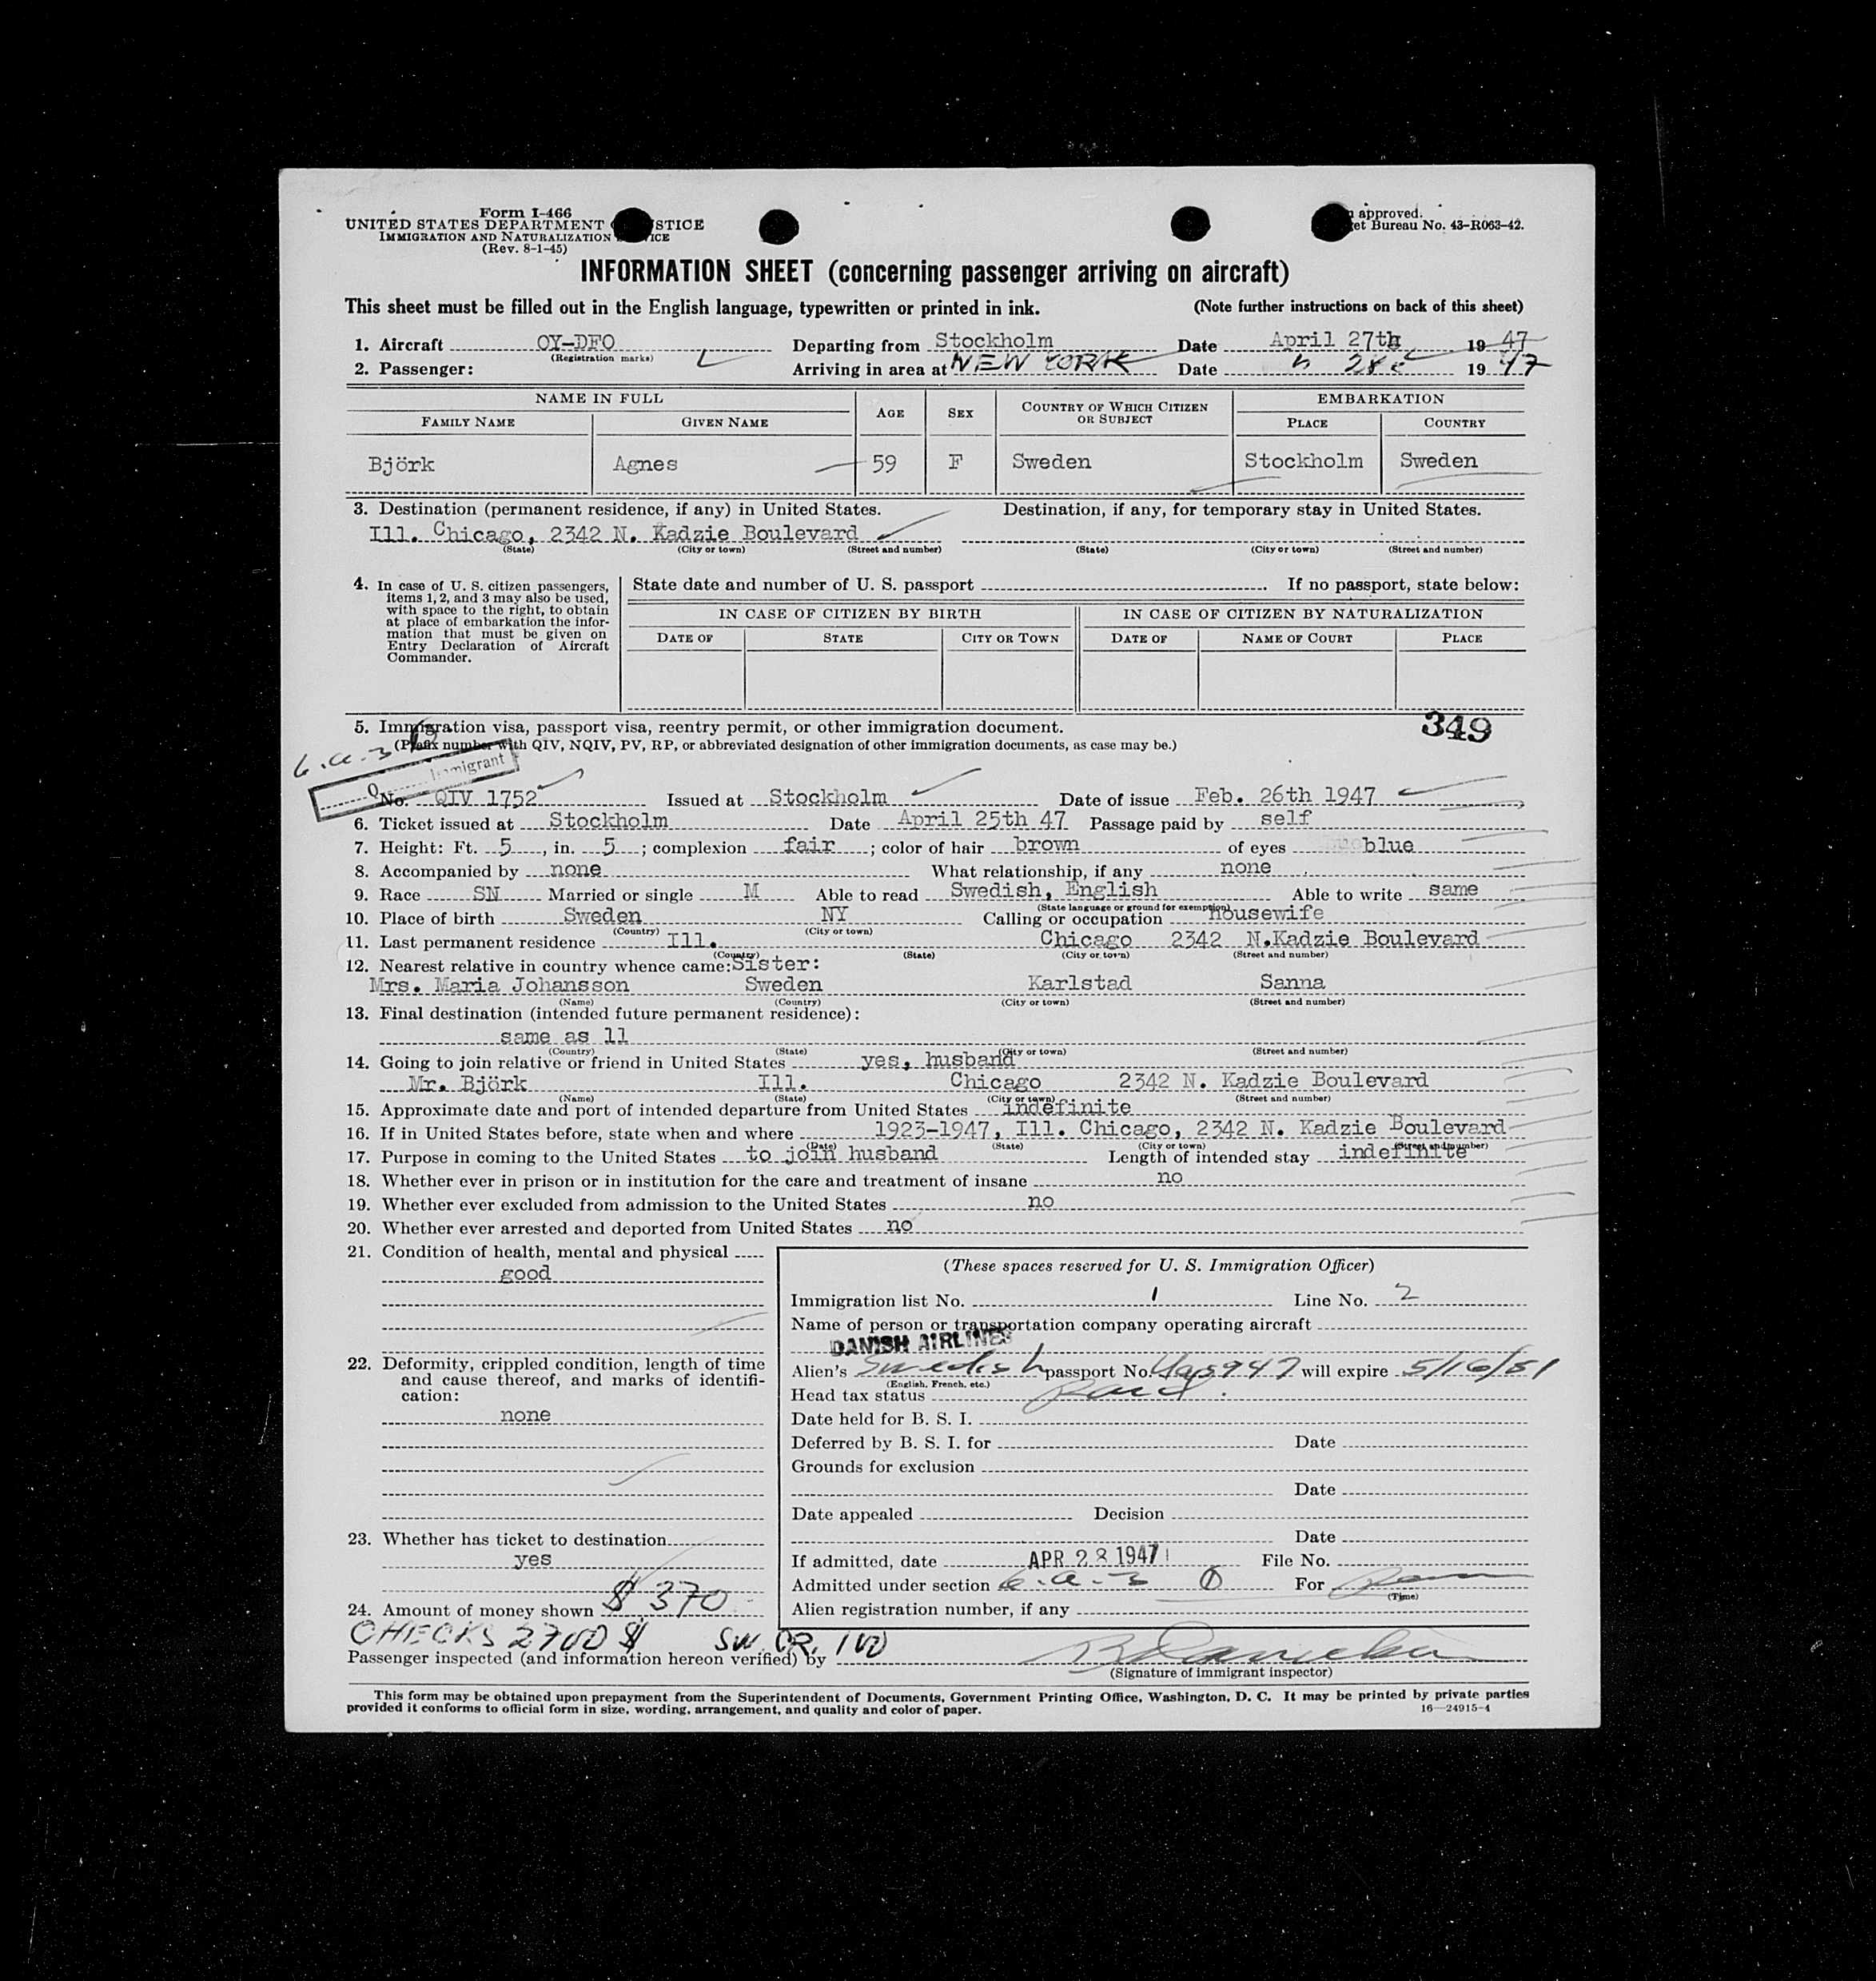 Form I-466
UNITED STATES DEPARTMENT STICE
IMMIGRATION AND NATURALIZATION ICE
(Rev. 8-1-45)
approved.
et Bureau No. 43-R063-42.
INFORMATION SHEET (concerning passenger arriving on aircraft)
This sheet must be filled out in the English language, typewritten or printed in ink. (Note further instructions on back of this sheet)
1. Aircraft OY-DFO Departing from Stockholm Date April 27th 1947
(Registration marks)
2. Passenger: Arriving in area at NEW YORK Date " 28 1947
NAME IN FULL AGE SEX COUNTRY OF WHICH CITIZEN OR SUBJECT EMBARKATION
FAMILY NAME GIVEN NAME PLACE COUNTRY
Björk Agnes 59 F Sweden Stockholm Sweden
3. Destination (permanent residence, if any) in United States. Destination, if any, for temporary stay in United States.
Ill. Chicago, 2342 N. Kadzie Boulevard
(State) (City or town) (Street and number) (State) (City or town) (Street and number)
4. In case of U. S. citizen passengers, items 1, 2, and 3 may also be used, with space to the right, to obtain at place of embarkation the information that must be given on Entry Declaration of Aircraft Commander.
State date and number of U. S. passport If no passport, state below:
IN CASE OF CITIZEN BY BIRTH IN CASE OF CITIZEN BY NATURALIZATION
DATE OF STATE CITY OR TOWN DATE OF NAME OF COURT PLACE
5. Immigration visa, passport visa, reentry permit, or other immigration document. 349
(Prefix number with QIV, NQIV, PV, RP, or abbreviated designation of other immigration documents, as case may be.)
6.a-3
Q Immigrant
No. QIV 1752 Issued at Stockholm Date of issue Feb. 26th 1947
6. Ticket issued at Stockholm Date April 25th 47 Passage paid by self
7. Height: Ft. 5, in. 5; complexion fair; color of hair brown of eyes blue
8. Accompanied by none What relationship, if any none
9. Race SN Married or single M Able to read Swedish, English Able to write same
(State language or ground for exemption)
10. Place of birth Sweden NY Calling or occupation housewife
(Country) (City or town)
11. Last permanent residence Ill. Chicago 2342 N.Kadzie Boulevard
(Country) (State) (City or town) (Street and number)
12. Nearest relative in country whence came: Sister:
Mrs. Maria Johansson Sweden Karlstad Sanna
(Name) (Country) (City or town) (Street and number)
13. Final destination (intended future permanent residence):
same as 11
(Country) (State) (City or town) (Street and number)
14. Going to join relative or friend in United States yes, husband
Mr. Björk Ill. Chicago 2342 N. Kadzie Boulevard
(Name) (State) (City or town) (Street and number)
15. Approximate date and port of intended departure from United States indefinite
16. If in United States before, state when and where 1923-1947, Ill. Chicago, 2342 N. Kadzie Boulevard
(Date) (State) (City or town) (Street and number)
17. Purpose in coming to the United States to join husband Length of intended stay indefinite
18. Whether ever in prison or in institution for the care and treatment of insane no
19. Whether ever excluded from admission to the United States no
20. Whether ever arrested and deported from United States no
21. Condition of health, mental and physical
good
22. Deformity, crippled condition, length of time and cause thereof, and marks of identification:
none
23. Whether has ticket to destination
yes
24. Amount of money shown $ 370
CHECKS 2700 $ SW. CR. 100
(These spaces reserved for U. S. Immigration Officer)
Immigration list No. 1 Line No. 2
Name of person or transportation company operating aircraft
DANISH AIRLINES
Alien's Swedish passport No. will expire 5/16/51
(English, French, etc.)
Head tax status Paid.
Date held for B. S. I.
Deferred by B. S. I. for Date
Grounds for exclusion
Date
Date appealed Decision
Date
If admitted, date APR 28 1947 File No.
Admitted under section 6-a-3 For
(Time)
Alien registration number, if any
Passenger inspected (and information hereon verified) by
(Signature of immigrant inspector)
This form may be obtained upon prepayment from the Superintendent of Documents, Government Printing Office, Washington, D. C. It may be printed by private parties
provided it conforms to official form in size, wording, arrangement, and quality and color of paper. 16—24915-4